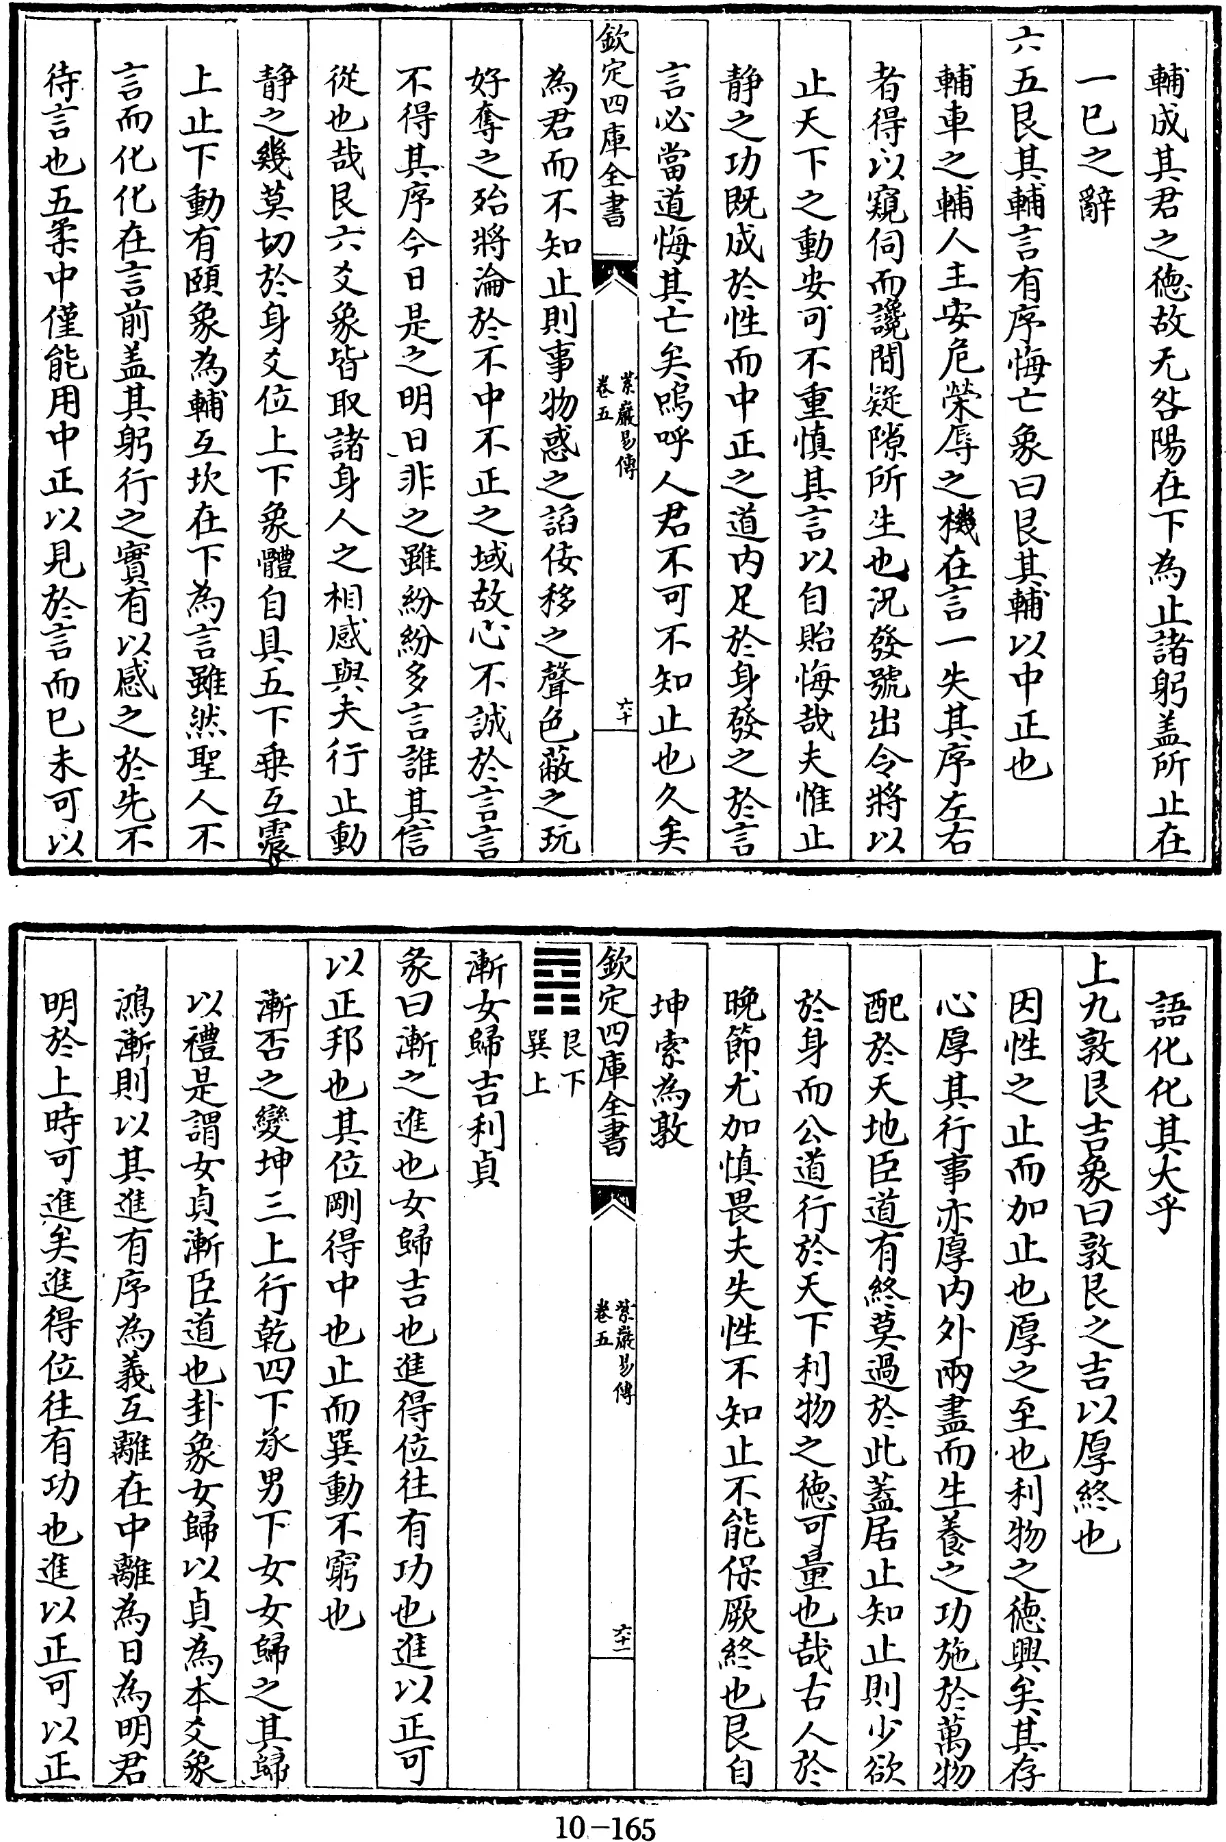 輔成其君之德故无咎陽在下為止諸躬盖所止在
一已之辭
六五艮其輔言有序悔亡象曰艮其輔以中正也
輔車之輔人主安危榮辱之機在言一失其序左右
者得以窺伺而讒間疑隙所生也況發號出令將以
止天下之動安可不重慎其言以自貽悔哉夫惟止
静之功既成於性而中正之道内足於身發之於言
言必當道悔其亡矣嗚呼人君不可不知止也久矣
欽定四庫全書
紫巖易傳
卷五
六十
為君而不知止則事物惑之謟佞移之聲色蔽之玩
好奪之殆將淪於不中不正之域故心不誠於言言
不得其序今日是之明日非之雖紛紛多言誰其信
從也哉艮六爻象皆取諸身人之相感與夫行止動
静之幾莫切於身爻位上下象體自具五下乗互震
上止下動有頤象為輔互坎在下為言雖然聖人不
言而化化在言前盖其躬行之實有以感之於先不
待言也五柔中僅能用中正以見於言而已未可以
語化化其大乎
上九敦艮吉象曰敦艮之吉以厚終也
因性之止而加止也厚之至也利物之德興矣其存
心厚其行事亦厚内外兩盡而生養之功施於萬物
配於天地臣道有終莫過於此蓋居止知止則少欲
於身而公道行於天下利物之德可量也哉古人於
晚節尤加慎畏夫失性不知止不能保厥終也艮自
坤索為敦
欽定四庫全書
紫巖易傳
卷五
六十一
䷴
艮下
巽上
漸女歸吉利貞
彖曰漸之進也女歸吉也進得位往有功也進以正可
以正邦也其位剛得中也止而巽動不窮也
漸否之變坤三上行乾四下承男下女女歸之其歸
以禮是謂女貞漸臣道也卦象女歸以貞為本爻象
鴻漸則以其進有序為義互離在中離為日為明君
明於上時可進矣進得位往有功也進以正可以正
10-165